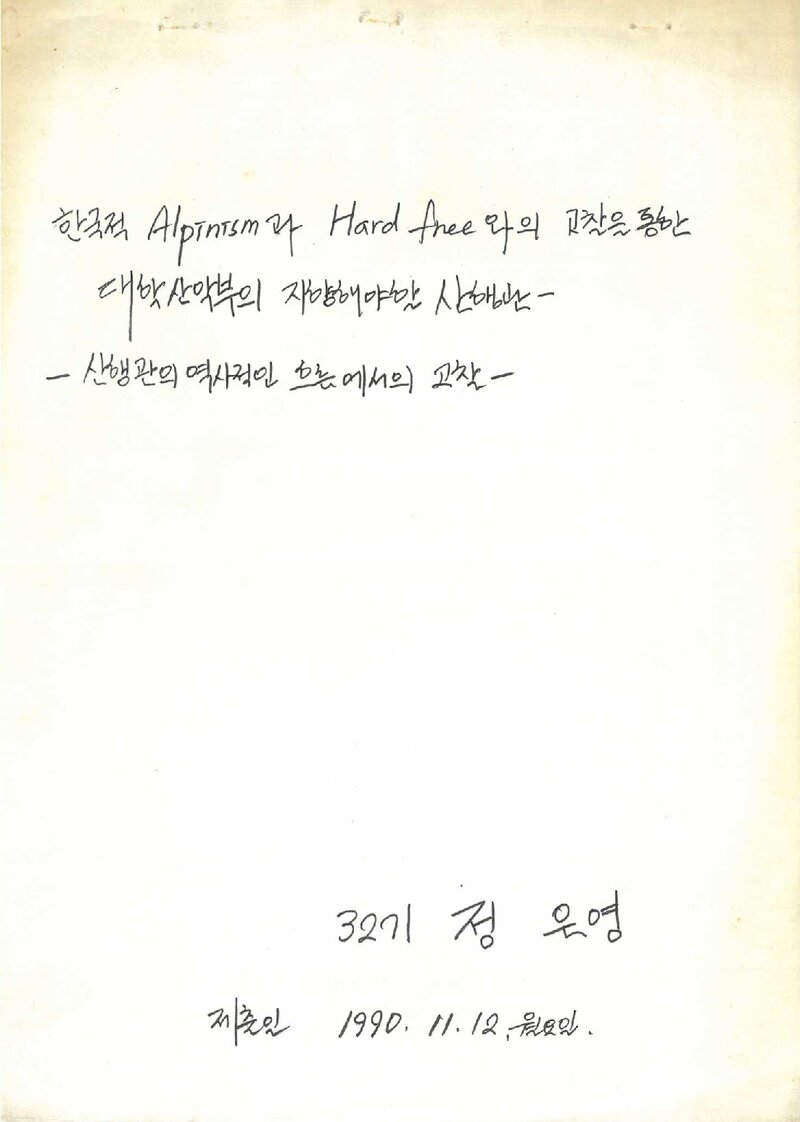 한국적 Alpinism과 Hard free와의 고찰을 통한
대학산악부의 지향해야할 산행관-
- 산행관의 역사적인 흐름에서의 고찰 -
32기 정 은영
제출일 1990. 11. 12. 월요일.